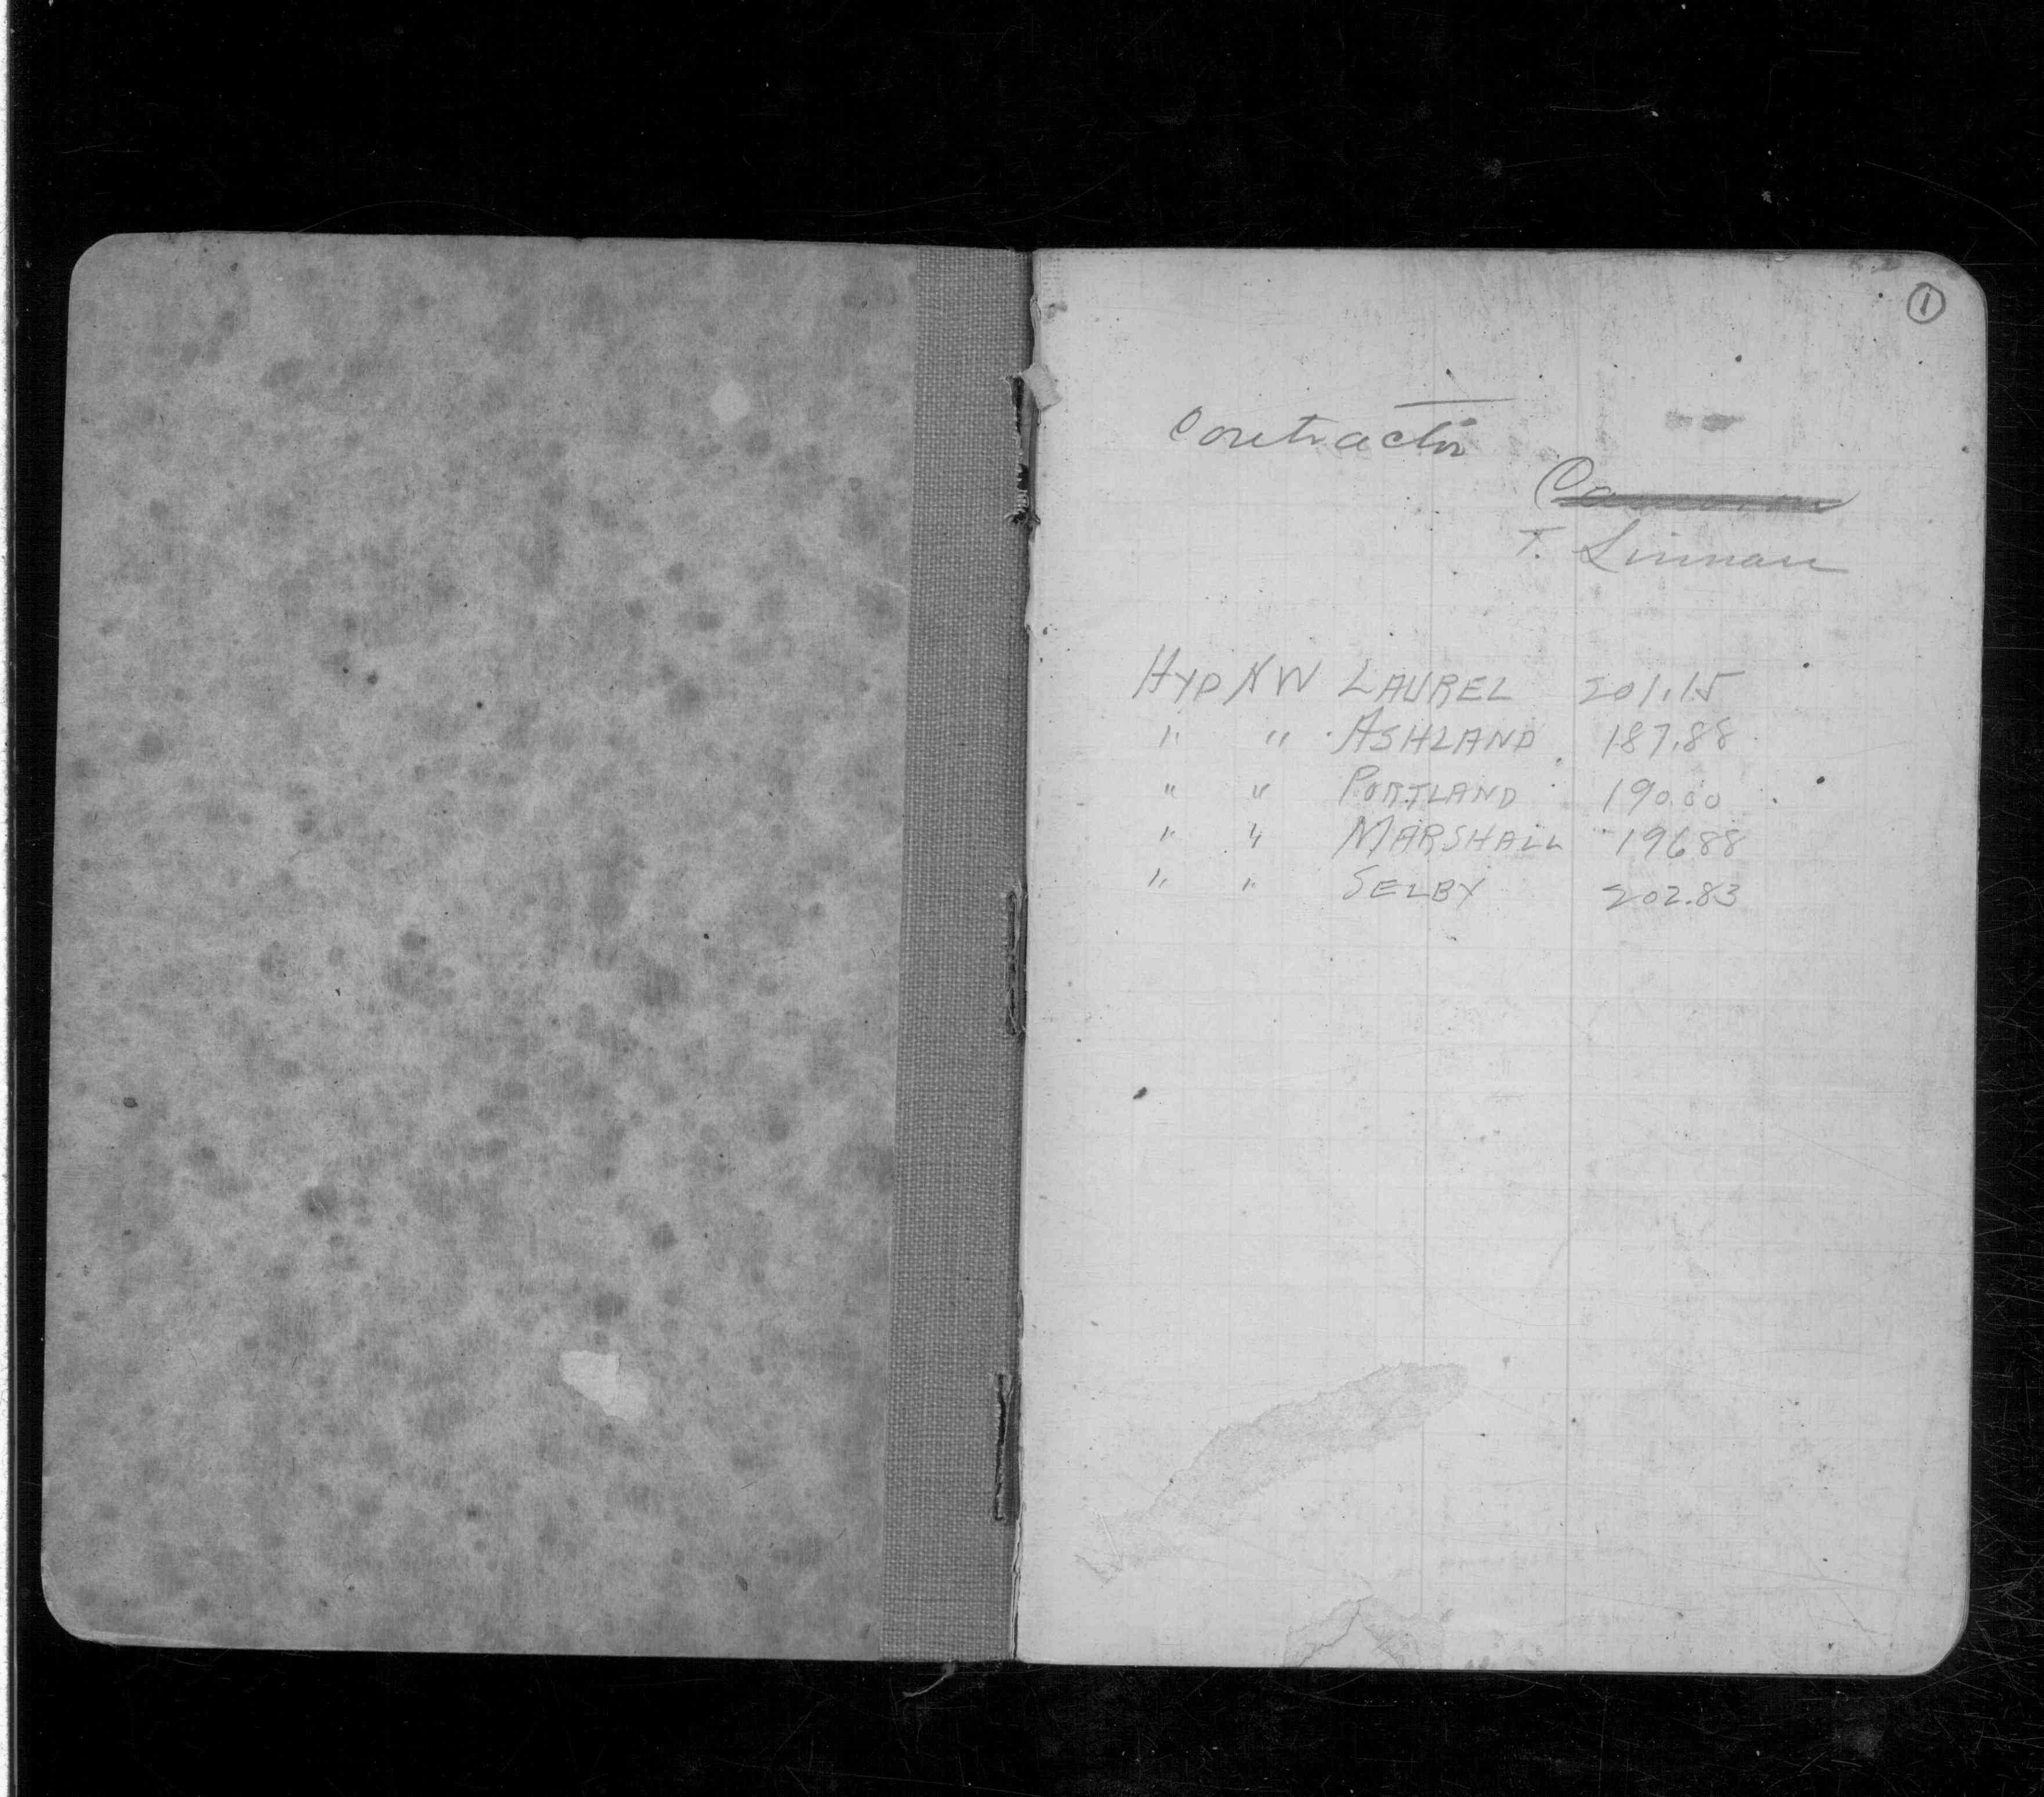 ①
Contractor
T. Linnan
HYD NW LAUREL 201.15
" " ASHLAND 187.88
" " PORTLAND 190.00
" " MARSHALL 196.88
" " SELBY 202.83